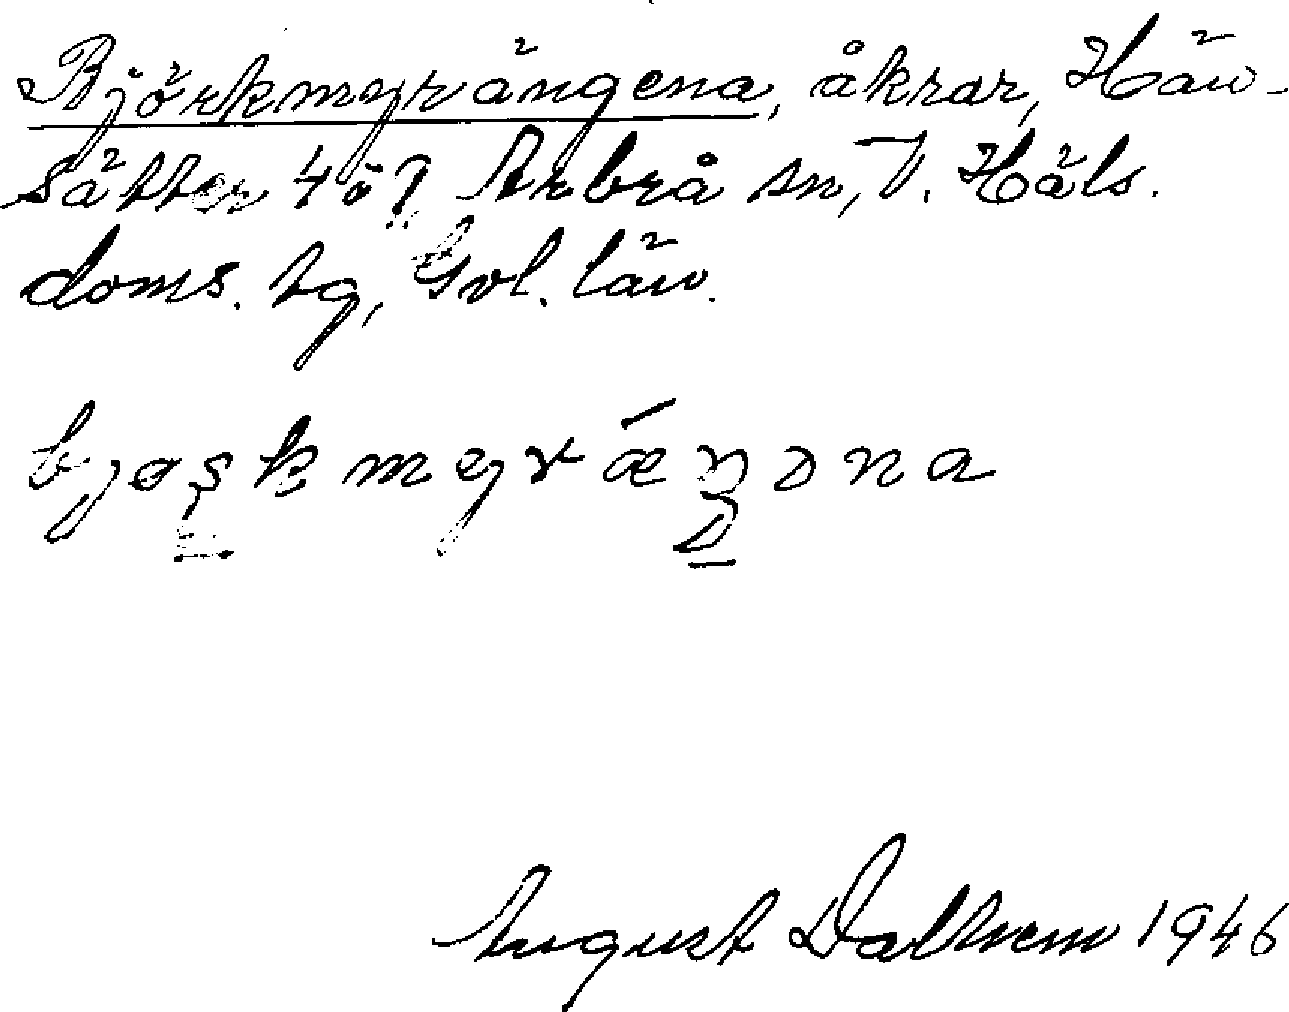 Björkmyrängena, åkrar, Hän-
sätter 4ö? Arbrå sn, V. Häls.
doms. tg, Gvl. län.
bjøşkmyrǽŋəna
August Dalhem 1946